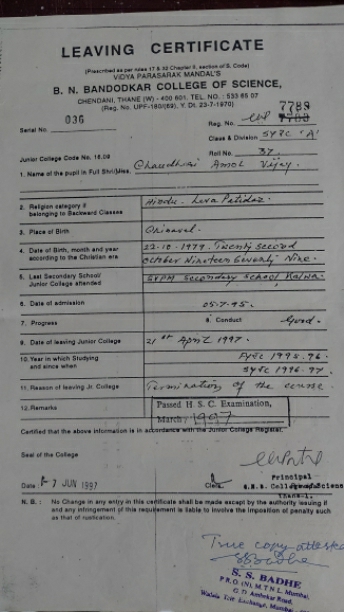 LEAVING CERTIFICATE
(Prescribed as per rules 17 & 32 Chapter II, section of S. Code)
VIDYA PRASARAK MANDAL'S
B. N. BANDODKAR COLLEGE OF SCIENCE,
CHENDANI, THANE (W) - 400 601. TEL. NO. : 533 65 07
(Reg. No. UPF-190(69), Y. Dt. 23-7-1970)
7789
Serial No. 036 Reg. No. 7788
Class & Division SYJC 'A'
Junior College Code No. 16.09 Roll No. 37
1. Name of the pupil in Full Shri/Miss. Chaudhari Amol Vijay.
2. Religion category if Hindu - Leva Patidar
belonging to Backward Classes
3. Place of Birth
4. Date of Birth, month and year 22-10-1979. Twenty second
according to the Christian era October Nineteen Seventy Nine.
5. Last Secondary School/ SVPM Secondary School, Kalwa.
Junior college attended
6. Date of admission 05-7-95.
7. Progress 8. Conduct Good.
9. Date of leaving Junior College 21st April 1997.
10. Year in which Studying FYJC 1995-96.
and since when SYJC 1996-97
11. Reason of leaving Jr. College Termination of the course.
12. Remarks Passed H. S. C. Examination,
March 1997
Certified that the above information is in accordance with the Junior College Register.
Seal of the College
Principal
Date : 7 JUN 1997 Clerk B.N.B. College of Science
Thane-1.
N. B. : No Change in any entry in this certificate shall be made except by the authority issuing it
and any infringement of this requirement is liable to involve the imposition of penalty such
as that of rustication.
True copy attested
S. S. BADHE
P.R.O (N), M.T.N.L. Mumbai,
G. D. Ambekar Road,
Wadala Tele Exchange, Mumbai